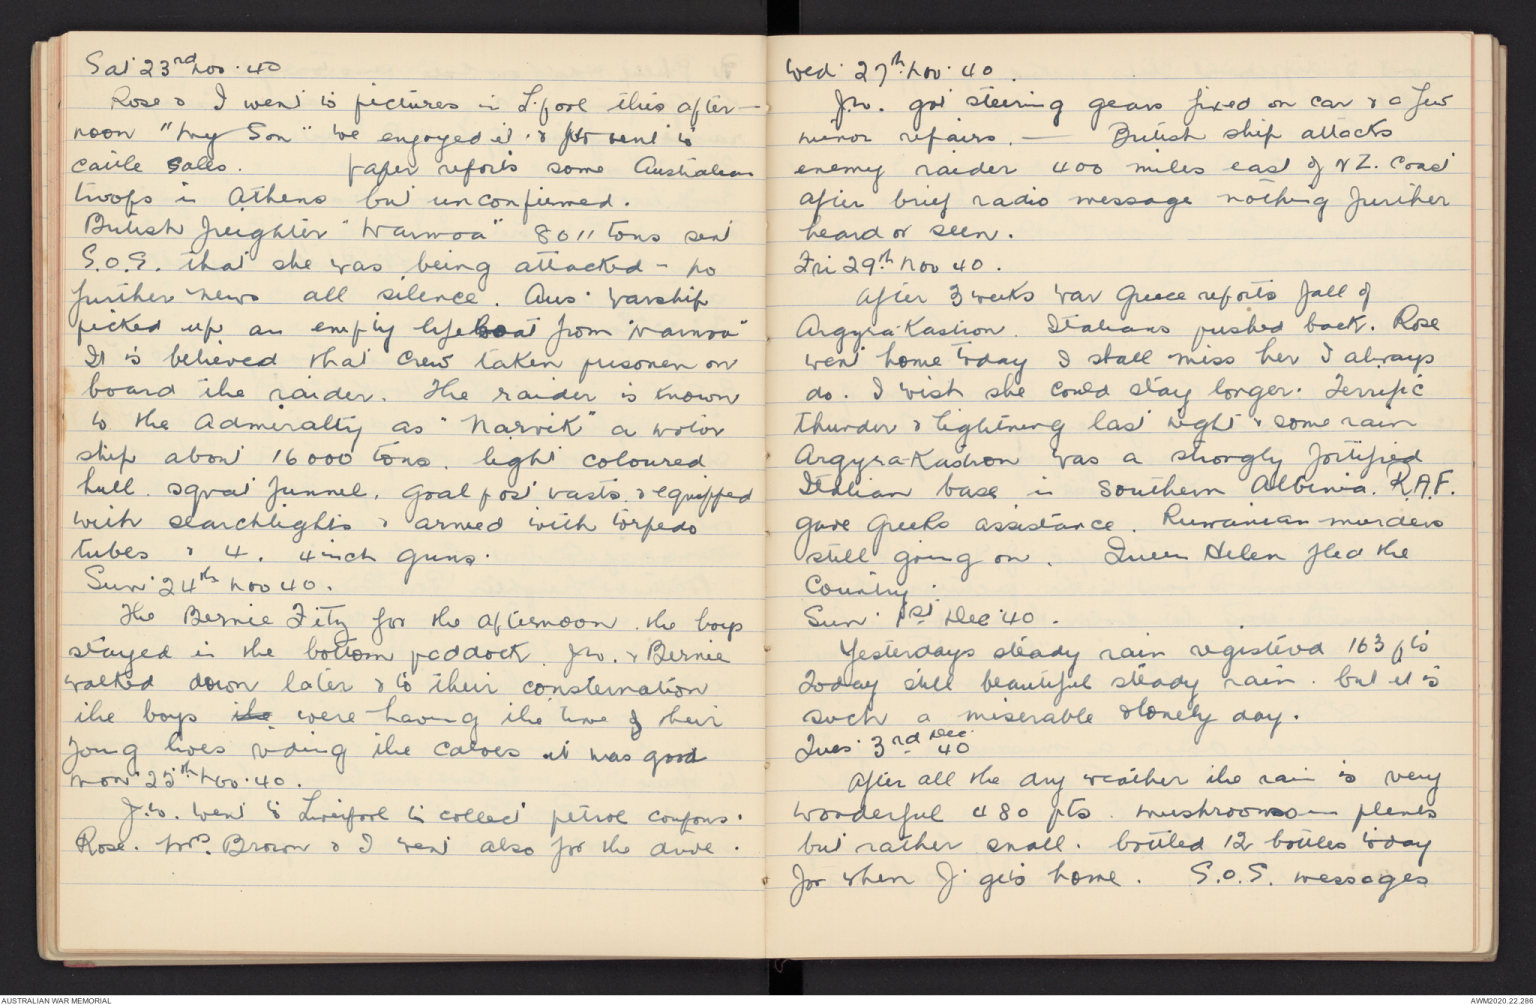 Sat 23rd Nov. 40
Rose & I went to pictures in L'pool this after-
noon "My Son" we enjoyed it. & JW went to
cattle sales. paper reports some Australian
troops in Athens but unconfirmed.
British freighter "Maimoa" 8011 tons sent
S.O.S. that she was being attacked - no
further news all silence. Aus. warship
picked up an empty lifeboat from "Maimoa"
It is believed that crew taken prisoners on
board the raider. The raider is known
to the Admiralty as "Narvik" a motor
ship about 16000 tons. light coloured
hull. squat funnel. Goal post masts. & equipped
with searchlights & armed with torpedo
tubes & 4. 4 inch guns.
Sun. 24th Nov 40.
The Bernie Fitz for the afternoon. the boys
stayed in the bottom paddock. JW. & Bernie
walked down later & to their consternation
the boys the were having the time of their
young lives riding the calves it was good
Mon. 25th Nov. 40.
J.W. went to Liverpool to collect petrol coupons.
Rose. Mrs. Brown & I went also for the drive.
Wed. 27th Nov. 40.
J.W. got steering gears fixed on car & a few
minor repairs. — British ship attacks
enemy raider 400 miles east of N Z. Coast
after brief radio message nothing further
heard or seen.
Fri 29th Nov 40.
After 3 weeks war Greece reports fall of
Argyra-Kastron. Italians pushed back. Rose
went home today I shall miss her I always
do. I wish she could stay longer. Terrific
thunder & lightning last night & some rain
Argyra-Kastron was a strongly fortified
Italian base in Southern Albinia. R.A.F.
gave Greeks assistance. Rumainian murders
still going on. Queen Helen fled the
Country.
Sun. 1st Dec 40.
Yesterdays steady rain registered 163 pts
Today still beautiful steady rain. but it is
such a miserable & lonely day.
Tues. 3rd Dec. 40
After all the dry weather the rain is very
wonderful 480 pts. mushrooms — plenty
but rather small. bottled 12 bottles today
for when J. gets home. S.O.S. messages
AUSTRALIAN WAR MEMORIAL
AWM2020.22.286